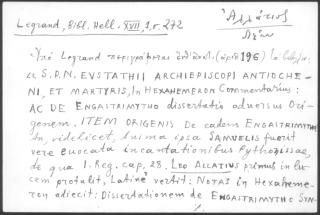 Legrand, Bibl. Hell. XVII, 1, σ. 272
Ἀλλάτιος
Λέων
Ὑπὸ Legrand περιγράφεται (ἀριθ 196)
S.P.N. EVSTATHII ARCHIEPISCOPI ANTIOCHE-
NI, ET MARTYRIS, In HEXAHEMERON Commentarius:
AC DE ENGASTRIMYTHO dissertatio adversus Ori-
genem. ITEM ORIGENIS De eadem ENGASTRIMYTHO
An, videlicet, anima ipsa SAMVELIS fuerit
vere evocata incantationibus Pythonissae,
de qua 1. Reg. cap. 28. LEO ALLATIVS primus in lu-
cem protulit, Latine vertit: NOTAS in Hexaheme-
ron adiecit: Dissertationem de ENGASTRIMYTHO SYN-